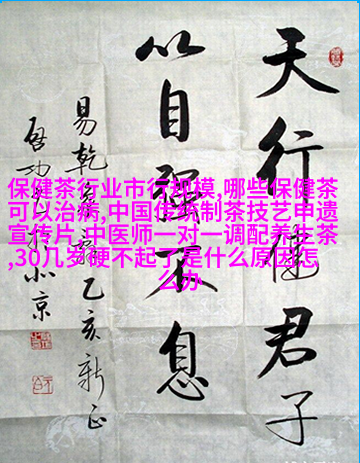 天行健君子
以自强不息
易乾象辞乙亥新正
启功书于北京
保健茶行业市场规模,哪些保健茶
可以治病,中国传统制茶技艺申遗
宣传片,中医师一对一调配养生茶
,30几岁硬不起了是什么原因怎
么办